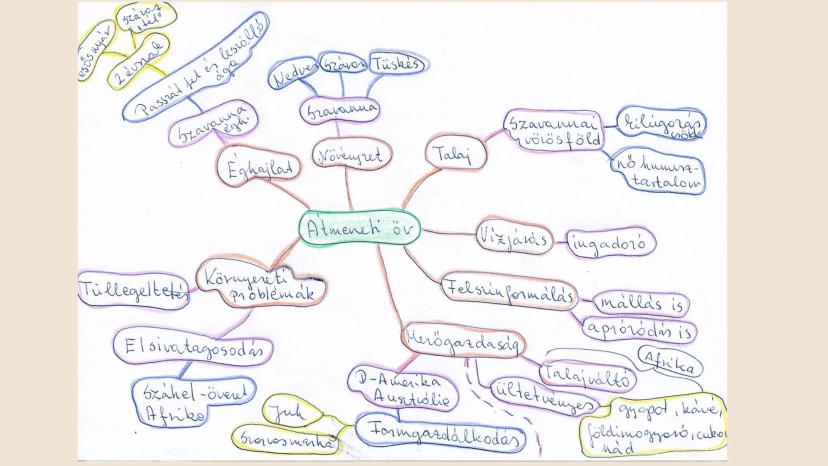 száraz
tél
esős nyár
2 évszak
Passzát fel és leszálló
ága
Szavanna
égh.
Éghajlat
Nedves
száraz
Tüskés
Szavanna
Növényzet
Talaj
Szavannai
vörösföld
kilúgozás
nő humusz-
tartalom
Átmeneti öv
Vízjárás
ingadozó
Felszínformálás
mállás is
aprózódás is
Környezeti
problémák
Túllegeltetés
Elsivatagosodás
Száhel-övezet
Afrika
Mezőgazdaság
Talajváltó
ültetvényes
Afrika
gyapot, kávé,
földimogyoró, cukor
nád
D-Amerika
Ausztrália
Farmgazdálkodás
Juh
Szarvasmarha